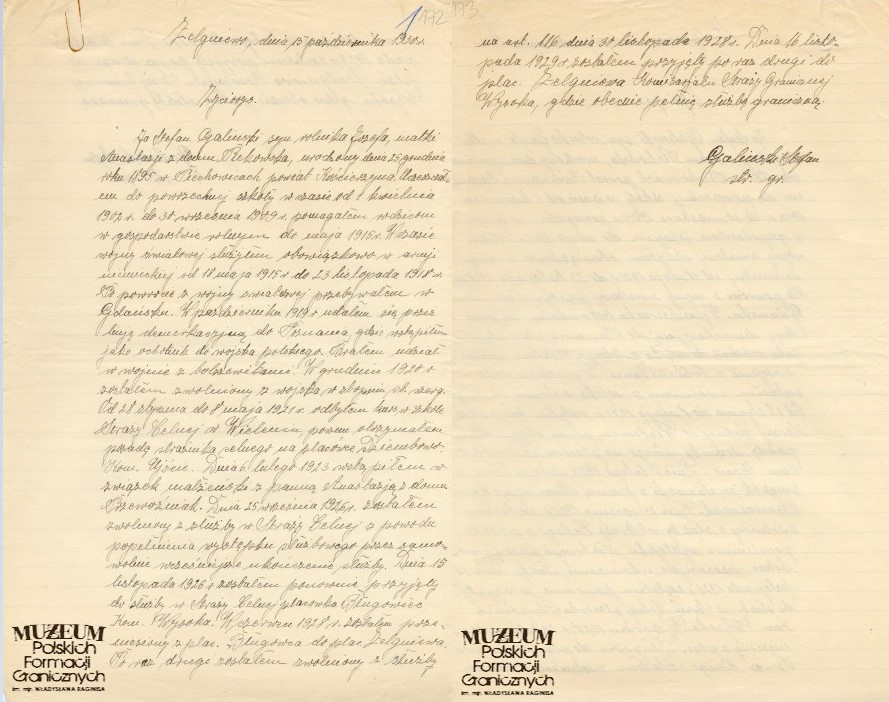 172 173
Zelgniewo, dnia 15 października 1930r.
Życiorys.
Ja Stefan Galiński syn rolnika Józefa, matki
Anastazji z domu Piekowska, urodzony dnia 25 grudnia
roku 1895 w Piechowicach powiat Kościerzyna. Uczęszcza-
łem do powszechnej szkoły w czasie od 1 kwietnia
1902 r. do 30 września 1909 r. pomagałem rodzicom
w gospodarstwie rolnym do maja 1915 r. W czasie
wojny światowej służyłem obowiązkowo w armji
niemieckiej od 18 maja 1915 r. do 23 listopada 1918 r.
Po powrocie z wojny światowej przebywałem w
Gdańsku. W październiku 1919 r. udałem się przez
linję demarkacyjną do Poznania, gdzie wstąpiłem
jako ochotnik do wojska polskiego. Brałem udział
w wojnie z bolszewikami. W grudniu 1920 r.
zostałem zwolniony z wojska w stopniu st. szereg.
Od 28 stycznia do 8 maja 1921 r. odbyłem kurs w szkole
Straży Celnej w Wieleniu, poczem otrzymałem
posadę strażnika celnego na placówce Dziembowo-
Kom. Ujście. Dnia 6 lutego 1923 wstąpiłem w
związek małżeński z panną Anastazją z domu
Przewoźniak. Dnia 25 września 1926 r. zostałem
zwolniony z służby w Straży Celnej z powodu
popełnienia występku służbowego przez samo-
wolne wcześniejsze ukończenie służby. Dnia 15
listopada 1926 r. zostałem ponownie przyjęty
do służby w Straży Celnej placówka Bługowiec
Kom. Wysoka. W czerwcu 1928 r. zostałem prze-
niesiony z plac. Bługowca do plac. Zelgniewa.
Po raz drugi zostałem zwolniony z służby
na art. 116 dnia 30 listopada 1928 r. Dnia 16 listo-
pada 1929 r. zostałem przyjęty po raz drugi do
plac. Zelgniewa Komisarjatu Straży Granicznej
Wysoka, gdzie obecnie pełnię służbę graniczną.
Galiński Stefan
str. gr.
MUZEUM
Polskich
Formacji
Granicznych
im. mjr. WŁADYSŁAWA RAGINISA
MUZEUM
Polskich
Formacji
Granicznych
im. mjr. WŁADYSŁAWA RAGINISA